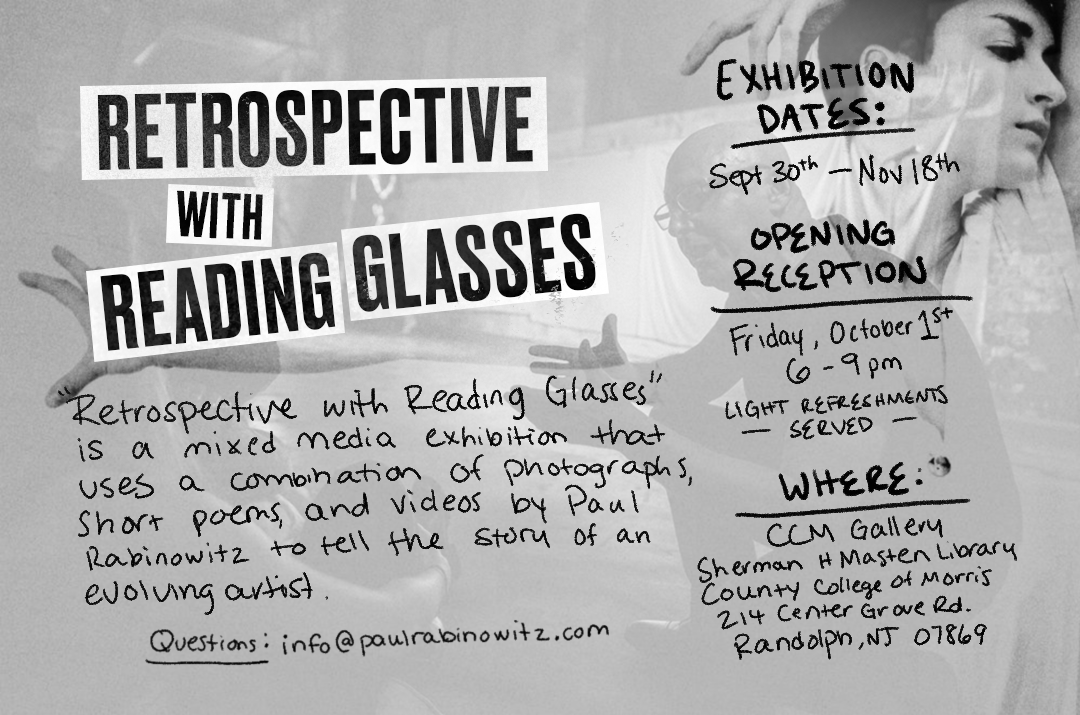 RETROSPECTIVE
WITH
READING GLASSES
"Retrospective with Reading Glasses"
is a mixed media exhibition that
uses a combination of photographs,
Short poems, and videos by Paul
Rabinowitz to tell the story of an
evolving artist.
Questions: info@paulrabinowitz.com
EXHIBITION
DATES:
Sept 30th — Nov 18th
OPENING
RECEPTION
Friday, October 1st
6 - 9 pm
LIGHT REFRESHMENTS
— SERVED —
WHERE:
CCM Gallery
Sherman H Masten Library
County College of Morris
214 Center Grove Rd.
Randolph, NJ 07869